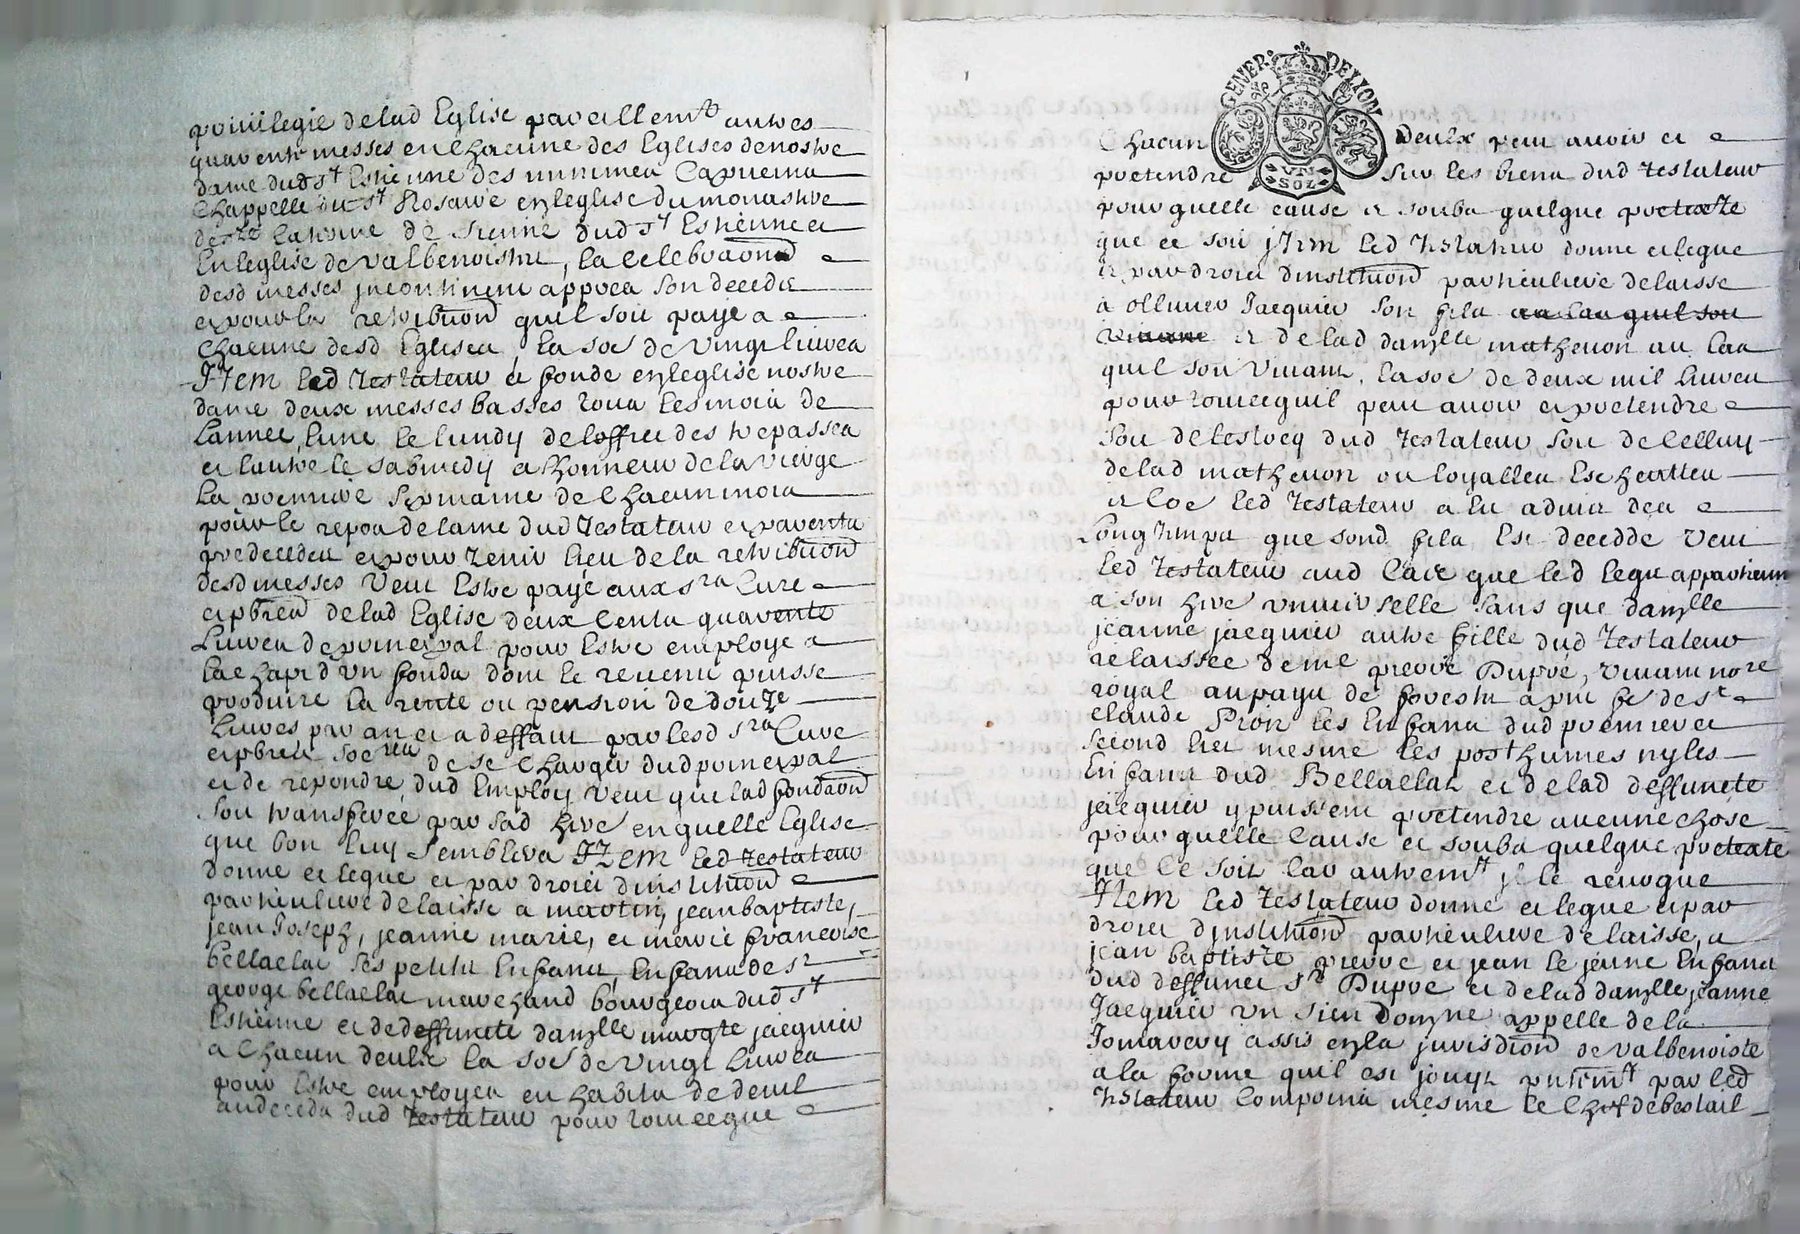 privilegie delad Eglise pareillemt autres
quarente messes en Chacune des Eglises de nostre
dame dud St Estienne des minimes Capucins
Chappelle du St Rosaire en leglise du monastre
de ste Caterine de Sienne dud St Estienne et
En leglise de valbenoiste, la Celebraon
desd messes jncontinent appres son decedz
et pour la retribuon quil soit paye a
Chacune desd Eglises, la soe de vingt livres
Jtem led Testateur a fonde en leglise nostre
dame deux messes basses tous les mois de
Lannee, Lune le lundy de loffice des trepasses
et lautre le sabmedy a lhonneur de la vierge
La premiere sepmaine de Chacun mois
pour le repos de lame dud Testateur et parents
predecedes et pour tenir lieu de la retribuon
desd messes veut Estre paye aux srs Cure
et pbres delad Eglise deux Cents quarente
Livres de principal pour Estre employe a
Lachapt dun fonds dont le revenu puisse
produire la rente ou pension de douze
Livres par an et a deffaut par lesd srs Cure
et pbres de se Charger dud principal
et de repondre dud Employ veut que lad fondaon
soit transferée par sad hire en quelle Eglise
que bon luy semblera JTem led testateur
donne et legue et par droict dinstituon
particuliere delaisse a martin, jean baptiste,
jean Joseph, jeanne marie, et marie francoise
bellaclat ses petits Enfans, Enfans de sr
george bellaclat marchand bourgeois dud St
Estienne et de deffuncte damlle margte jacquier
a Chacun deulx la soe de vingt livres
pour Estre employes en habits de deuil
au decedz dud Testateur pour tout ce que
GENER. DE LION
VN
SOL
Chacun deulx peut avoir et
pretendre sur les biens dud testateur
pour quelle cause et soubs quelque pretexte
que ce soit jtem led testateur donne et legue
et par droict dinstituon particuliere delaisse
a ollivier Jacquier son fils
et de lad damlle mathevon au Cas
quil soit vivant, la soe de deux mil livres
pour tout ce quil peut avoir et pretendre
soit de lestocq dud testateur soit de Celluy
delad mathevon ou loyalles Escheuttes
et Coe led testateur a Eu advis des
Long temps que sond fils Est decedde veut
led Testateur aud Cas que led legat appartienne
a son hire universelle sans que damlle
jeanne jacquier autre fille dud testateur
relaissee de me pierre Dupré, vivant nore
royal au pays de forests a pnt fe de sr
Claude Prior les Enfans dud premier et
second lict mesme les posthumes ny les
Enfans dud Bellaclat et delad deffuncte
jacquier y puissent pretendre aucune chose
pour quelle Cause et soubs quelque pretexte
que Ce soit Car autremt jl le revoque
Jtem led testateur donne et legue et par
droict dinstituon particuliere delaisse, a
jean baptiste pierre et jean le jeune Enfans
dud deffunct sr Dupre et delad damlle jeanne
Jacquier un sien domyne appelle de la
Jomarery assis en la jurisdion de valbenoiste
a la forme quil est jouyt pntemt par led
testateur Comprins mesme le Cheptel de bestail